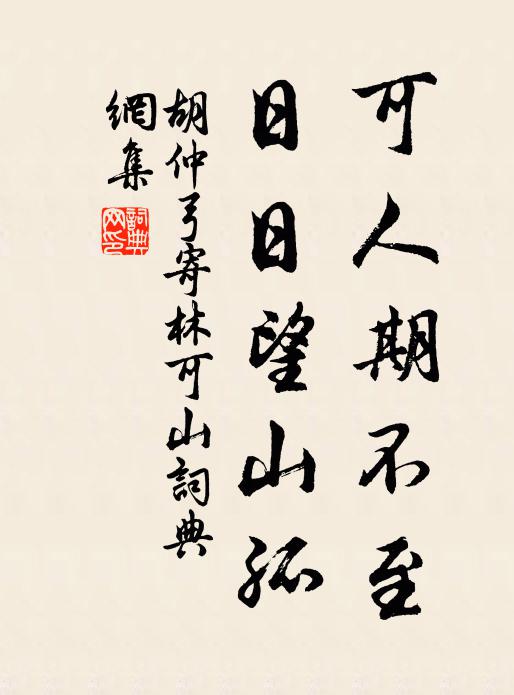 可人期不至
日日望山孤
胡仲弓寄林可山詞典
網集
詞典
网印